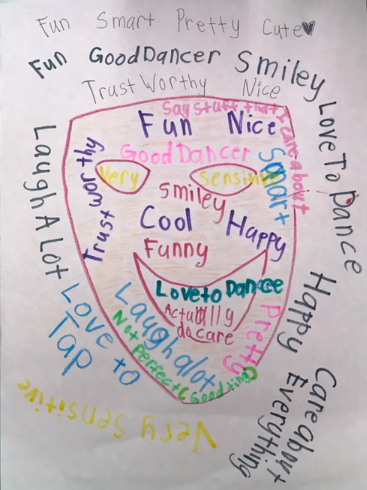 Fun Smart Pretty Cute
Fun Good Dancer Smiley
Trust Worthy Nice
Love To Dance
Happy
Care abovt Everything
Very Sensitive
Love to Tap
Laugh A Lot
Say stuff that I care about
Fun Nice
Good Dancer
Smart
Trust worthy
Very Sensitive
Smiley
Cool
Happy
Funny
Love to Dance
Actually
do care
Pretty
Laugh alot